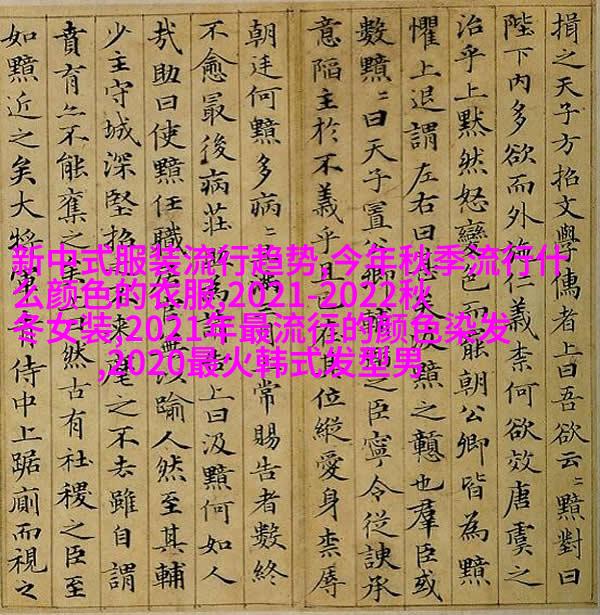 揖之天子方招文學儒者上曰吾欲云〻黯對曰
陛下內多欲而外施仁義柰何欲效唐虞之
治乎上默然怒變色而罷朝公卿皆為黯
懼上退謂左右曰矣黯之戇也羣臣或
數黯〻曰天子置公卿輔之臣寧令從諛承
意陷主於不義乎且在其位縱愛身柰辱
朝廷何黯多病〻滿三常賜告者數終
不愈最後病莊為請告上曰汲黯何如人
哉助曰使黯任職官無以踰人然至其輔
少主守城深堅招來麾之不去雖自謂
賁育亦不能奪之曰然古有社稷之臣至
如黯近之矣大將侍中上踞廁而視之
新中式服装流行趋势,今年秋季流行什
么颜色的衣服,2021-2022秋
冬女装,2021年最流行的颜色染发
,2020最火韩式发型男